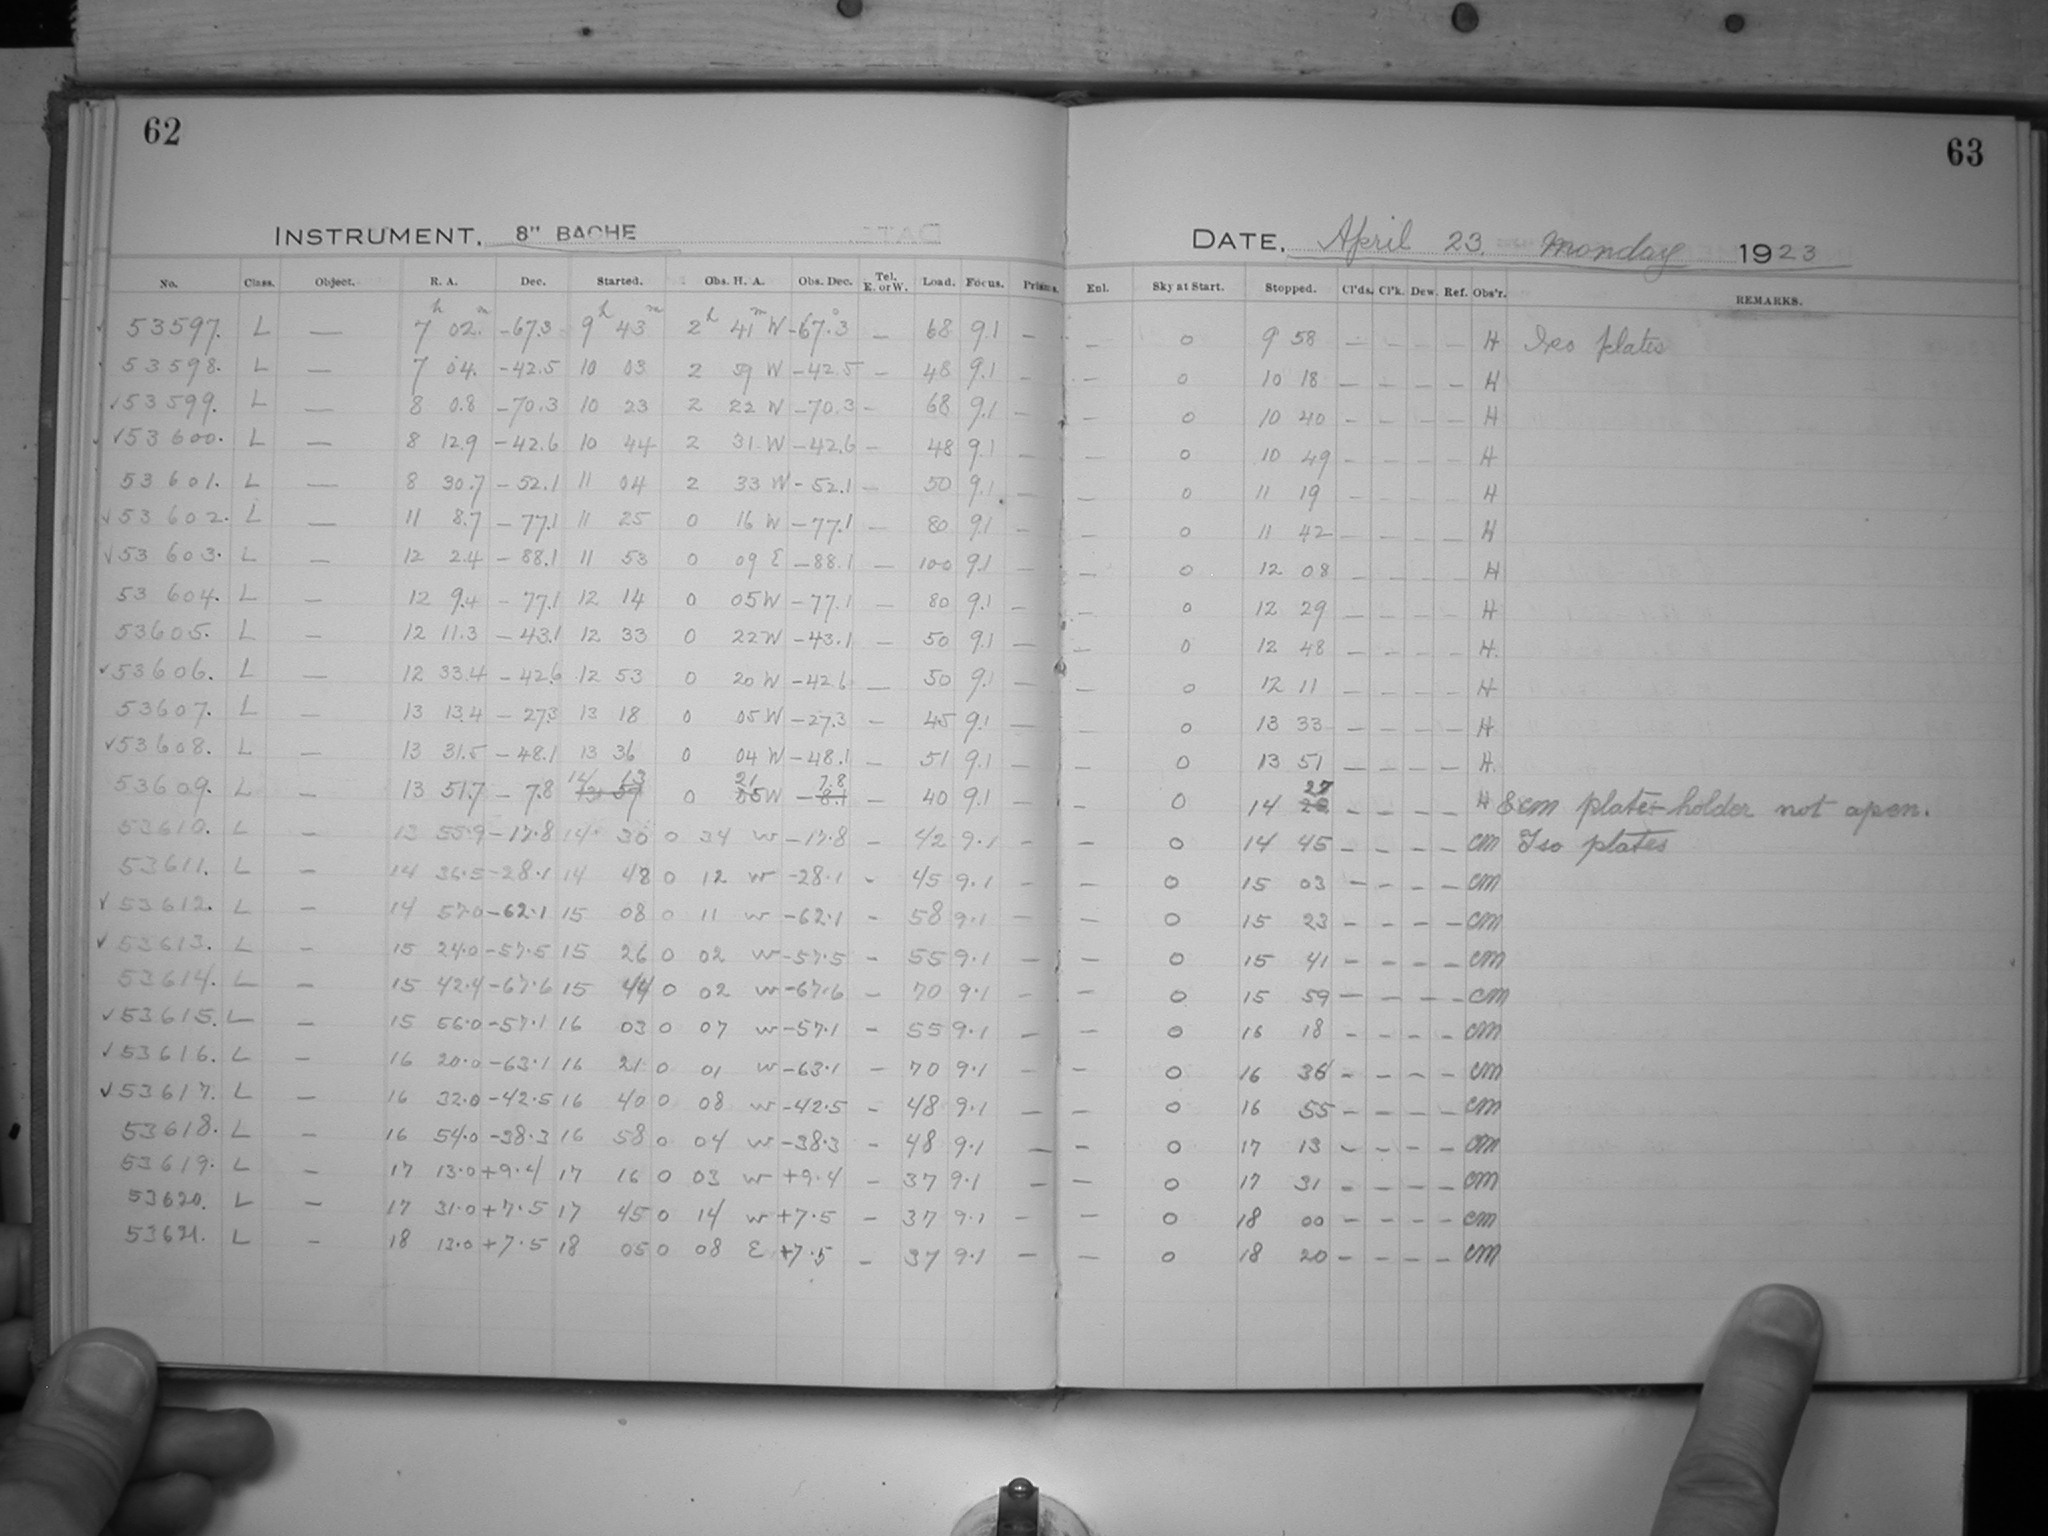 62
63
INSTRUMENT. 8" BACHE
DATE. April 23. Monday 1923
No. Class. Object. R. A. Dec. Started. Obs. H. A. Obs. Dec. Tel. E. or W. Load. Focus. Prisms. Enl. Sky at Start. Stopped. Cl'ds. Cl'k. Dew. Ref. Obs'r. REMARKS.
✓ 53597. L — 7h 02.m -67.3 9h 43m 2h 41m W -67.°3 — 68 9.1 — — 0 9 58 — — — — H Iso plates
53598. L — 7 04. -42.5 10 03 2 59 W -42.5 — 48 9.1 — — 0 10 18 — — — — H
✓53599. L — 8 0.8 -70.3 10 23 2 22 W -70.3 — 68 9.1 — — 0 10 40 — — — — H
✓53600. L — 8 12.9 -42.6 10 44 2 31 W -42.6 — 48 9.1 — — 0 10 49 — — — — H
53601. L — 8 30.7 -52.1 11 04 2 33 W -52.1 — 50 9.1 — — 0 11 19 — — — — H
✓53602. L — 11 8.7 -77.1 11 25 0 16 W -77.1 — 80 9.1 — — 0 11 42 — — — — H
✓53603. L — 12 2.4 -88.1 11 53 0 09 E -88.1 — 100 9.1 — — 0 12 08 — — — — H
53604. L — 12 9.4 -77.1 12 14 0 05 W -77.1 — 80 9.1 — — 0 12 29 — — — — H
53605. L — 12 11.3 -43.1 12 33 0 22 W -43.1 — 50 9.1 — — 0 12 48 — — — — H.
✓53606. L — 12 33.4 -42.6 12 53 0 20 W -42.6 — 50 9.1 — — 0 12 11 — — — — H
53607. L — 13 13.4 -27.3 13 18 0 05 W -27.3 — 45 9.1 — — 0 13 33 — — — — H
✓53608. L — 13 31.5 -48.1 13 36 0 04 W -48.1 — 51 9.1 — — 0 13 51 — — — — H.
53609. L — 13 51.7 -7.8 14 13 0 21 W -7.8 — 40 9.1 — — 0 14 27 — — — — H 8cm plate-holder not open.
53610. L — 13 55.9 -17.8 14 30 0 34 W -17.8 — 42 9.1 — — 0 14 45 — — — — CM Iso plates
53611. L — 14 36.5 -28.1 14 48 0 12 W -28.1 — 45 9.1 — — 0 15 03 — — — — CM
✓53612. L — 14 57.0 -62.1 15 08 0 11 W -62.1 — 58 9.1 — — 0 15 23 — — — — CM
✓53613. L — 15 24.0 -57.5 15 26 0 02 W -57.5 — 55 9.1 — — 0 15 41 — — — — CM
53614. L — 15 42.4 -67.6 15 44 0 02 W -67.6 — 70 9.1 — — 0 15 59 — — — — CM
✓53615. L — 15 56.0 -57.1 16 03 0 07 W -57.1 — 55 9.1 — — 0 16 18 — — — — CM
✓53616. L — 16 20.0 -63.1 16 21 0 01 W -63.1 — 70 9.1 — — 0 16 36 — — — — CM
✓53617. L — 16 32.0 -42.5 16 40 0 08 W -42.5 — 48 9.1 — — 0 16 55 — — — — CM
53618. L — 16 54.0 -38.3 16 58 0 04 W -38.3 — 48 9.1 — — 0 17 13 — — — — CM
53619. L — 17 13.0 +9.4 17 16 0 03 W +9.4 — 37 9.1 — — 0 17 31 — — — — CM
53620. L — 17 31.0 +7.5 17 45 0 14 W +7.5 — 37 9.1 — — 0 18 00 — — — — CM
53621. L — 18 13.0 +7.5 18 05 0 08 E +7.5 — 37 9.1 — — 0 18 20 — — — — CM